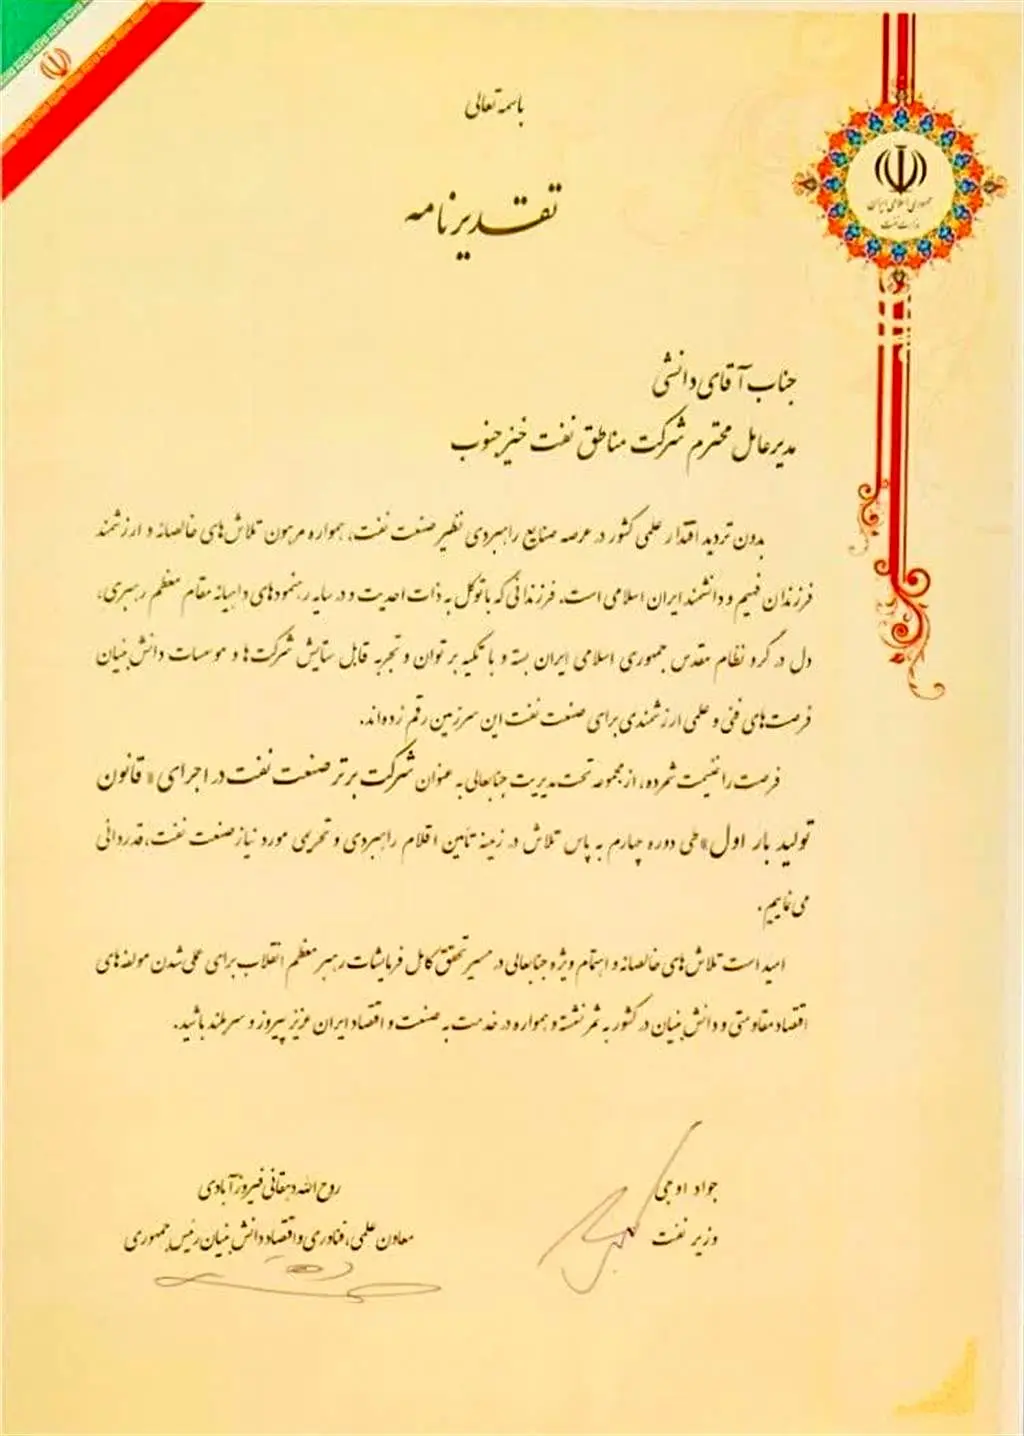 باسمه تعالی
تقدیرنامه
جمهوری اسلامی ایران
وزارت نفت
جناب آقای دانشی
مدیرعامل محترم شرکت مناطق نفت خیز جنوب
بدون تردید اقتدار علمی کشور در عرصه صنایع راهبردی نظیر صنعت نفت، همواره مرهون تلاش‌های خالصانه و ارزشمند
فرزندان فهیم و دانشمند ایران اسلامی است. فرزندانی که با توکل به ذات احدیت و در سایه رهنمودهای داهیانه مقام معظم رهبری،
دل در گرو نظام مقدس جمهوری اسلامی ایران بسته و با تکیه بر توان و تجربه قابل ستایش شرکت‌ها و موسسات دانش‌بنیان
فرصت‌های فنی و علمی ارزشمندی برای صنعت نفت این سرزمین رقم زده‌اند.
فرصت را غنیمت شمرده، از مجموعه تحت مدیریت جنابعالی به عنوان شرکت برتر صنعت نفت در اجرای «قانون
تولید بار اول» طی دوره چهارم به پاس تلاش در زمینه تأمین اقلام راهبردی و تحریمی مورد نیاز صنعت نفت، قدردانی
می‌نماییم.
امید است تلاش‌های خالصانه و اهتمام ویژه جنابعالی در مسیر تحقق کامل فرمایشات رهبر معظم انقلاب برای عملی شدن مولفه‌های
اقتصاد مقاومتی و دانش‌بنیان در کشور به ثمر نشسته و همواره در خدمت به صنعت و اقتصاد ایران عزیز پیروز و سربلند باشید.
جواد اوجی
وزیر نفت
روح الله دهقانی فیروزآبادی
معاون علمی، فناوری و اقتصاد دانش بنیان رئیس جمهوری